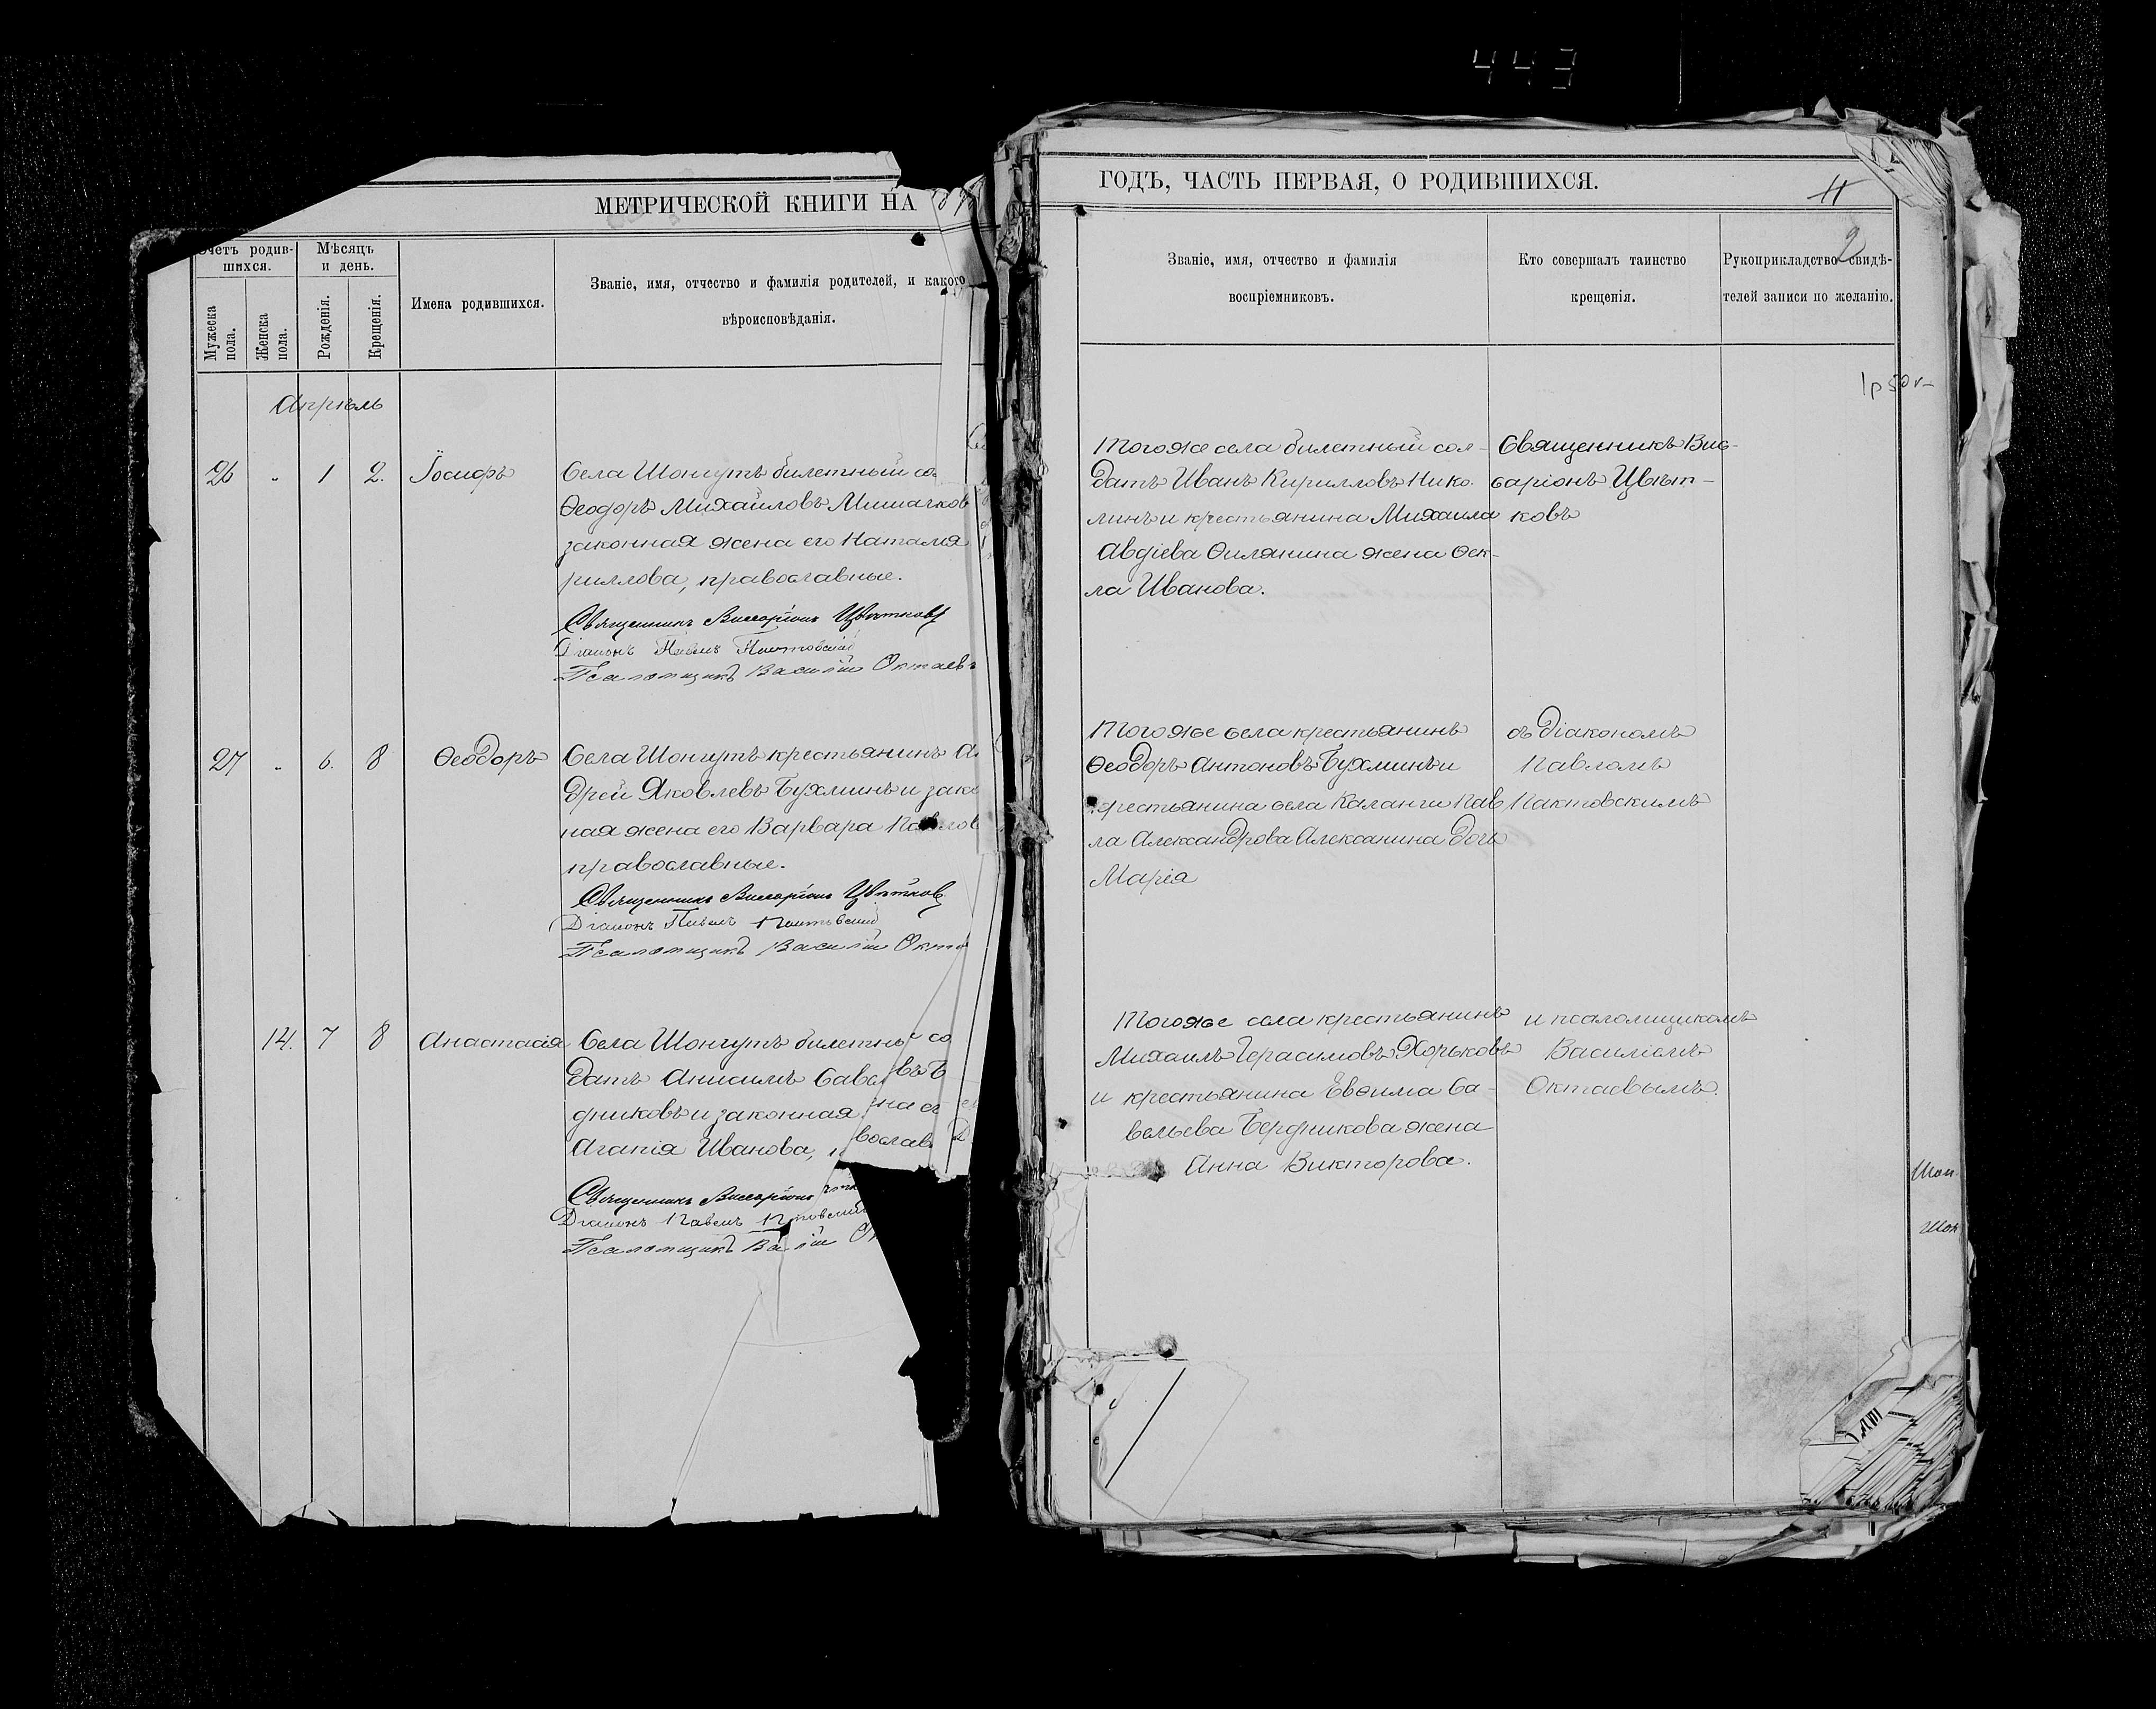 443
МЕТРИЧЕСКОЙ КНИГИ НА
Счетъ родив-
шихся.
Мѣсяцъ
и день.
Мужеска
пола.
Женска
пола.
Рожденія.
Крещенія.
Имена родившихся.
Званіе, имя, отчество и фамилія родителей, и какого
вѣроисповѣданія.
Апрѣль
26 " 1 2. Іосифъ
Села Шонгутъ билетный со
Ѳеодоръ Михайловъ Мишачков
законная жена его Наталія
риллова, православные.
Священникъ Виссаріонъ Цвѣтковъ
Діаконъ Павелъ Пактовскій
Псаломщикъ Василій Октаевъ
27 " 6. 8 Ѳеодоръ
Села Шонгутъ крестьянинъ Ан
дрей Яковлевъ Бухминъ и зако
ная жена его Варвара Павлов
православные.
Священникъ Виссаріонъ Цвѣтков
Діаконъ Павелъ Пактовскій
Псаломщикъ Василій Окта
14. 7 8 Анастасія
Села Шонгутъ билетны со
датъ Анисимъ Саве въ Б
дниковъ и законная на ег
Агапія Иванова, вослав
Священникъ Виссаріонъ
Діаконъ Павелъ
Псаломщикъ
ГОДЪ, ЧАСТЬ ПЕРВАЯ, О РОДИВШИХСЯ.
11
2
Званіе, имя, отчество и фамилія
воспріемниковъ.
Кто совершалъ таинство
крещенія.
Рукоприкладство свидѣ-
телей записи по желанію.
Того же села билетный сол-
датъ Иванъ Кирилловъ Нико-
линъ и крестьянина Михаила
Авдіева Филянина жена Ѳек-
ла Иванова.
Священникъ Вис-
саріонъ Цвѣт-
ковъ
Того же села крестьянинъ
Ѳеодоръ Антоновъ Бухминъ и
крестьянина села Каланги Пав
ла Александрова Алексанина дочь
Марія
съ діакономъ
Павломъ
Пактовскимъ
Того же села крестьянинъ
Михаилъ Герасимовъ Хорьковъ
и крестьянина Евѳима Са-
вельева Бердникова жена
Анна Викторова.
и псаломщикомъ
Василіемъ
Октаевымъ.
Шон
Шон